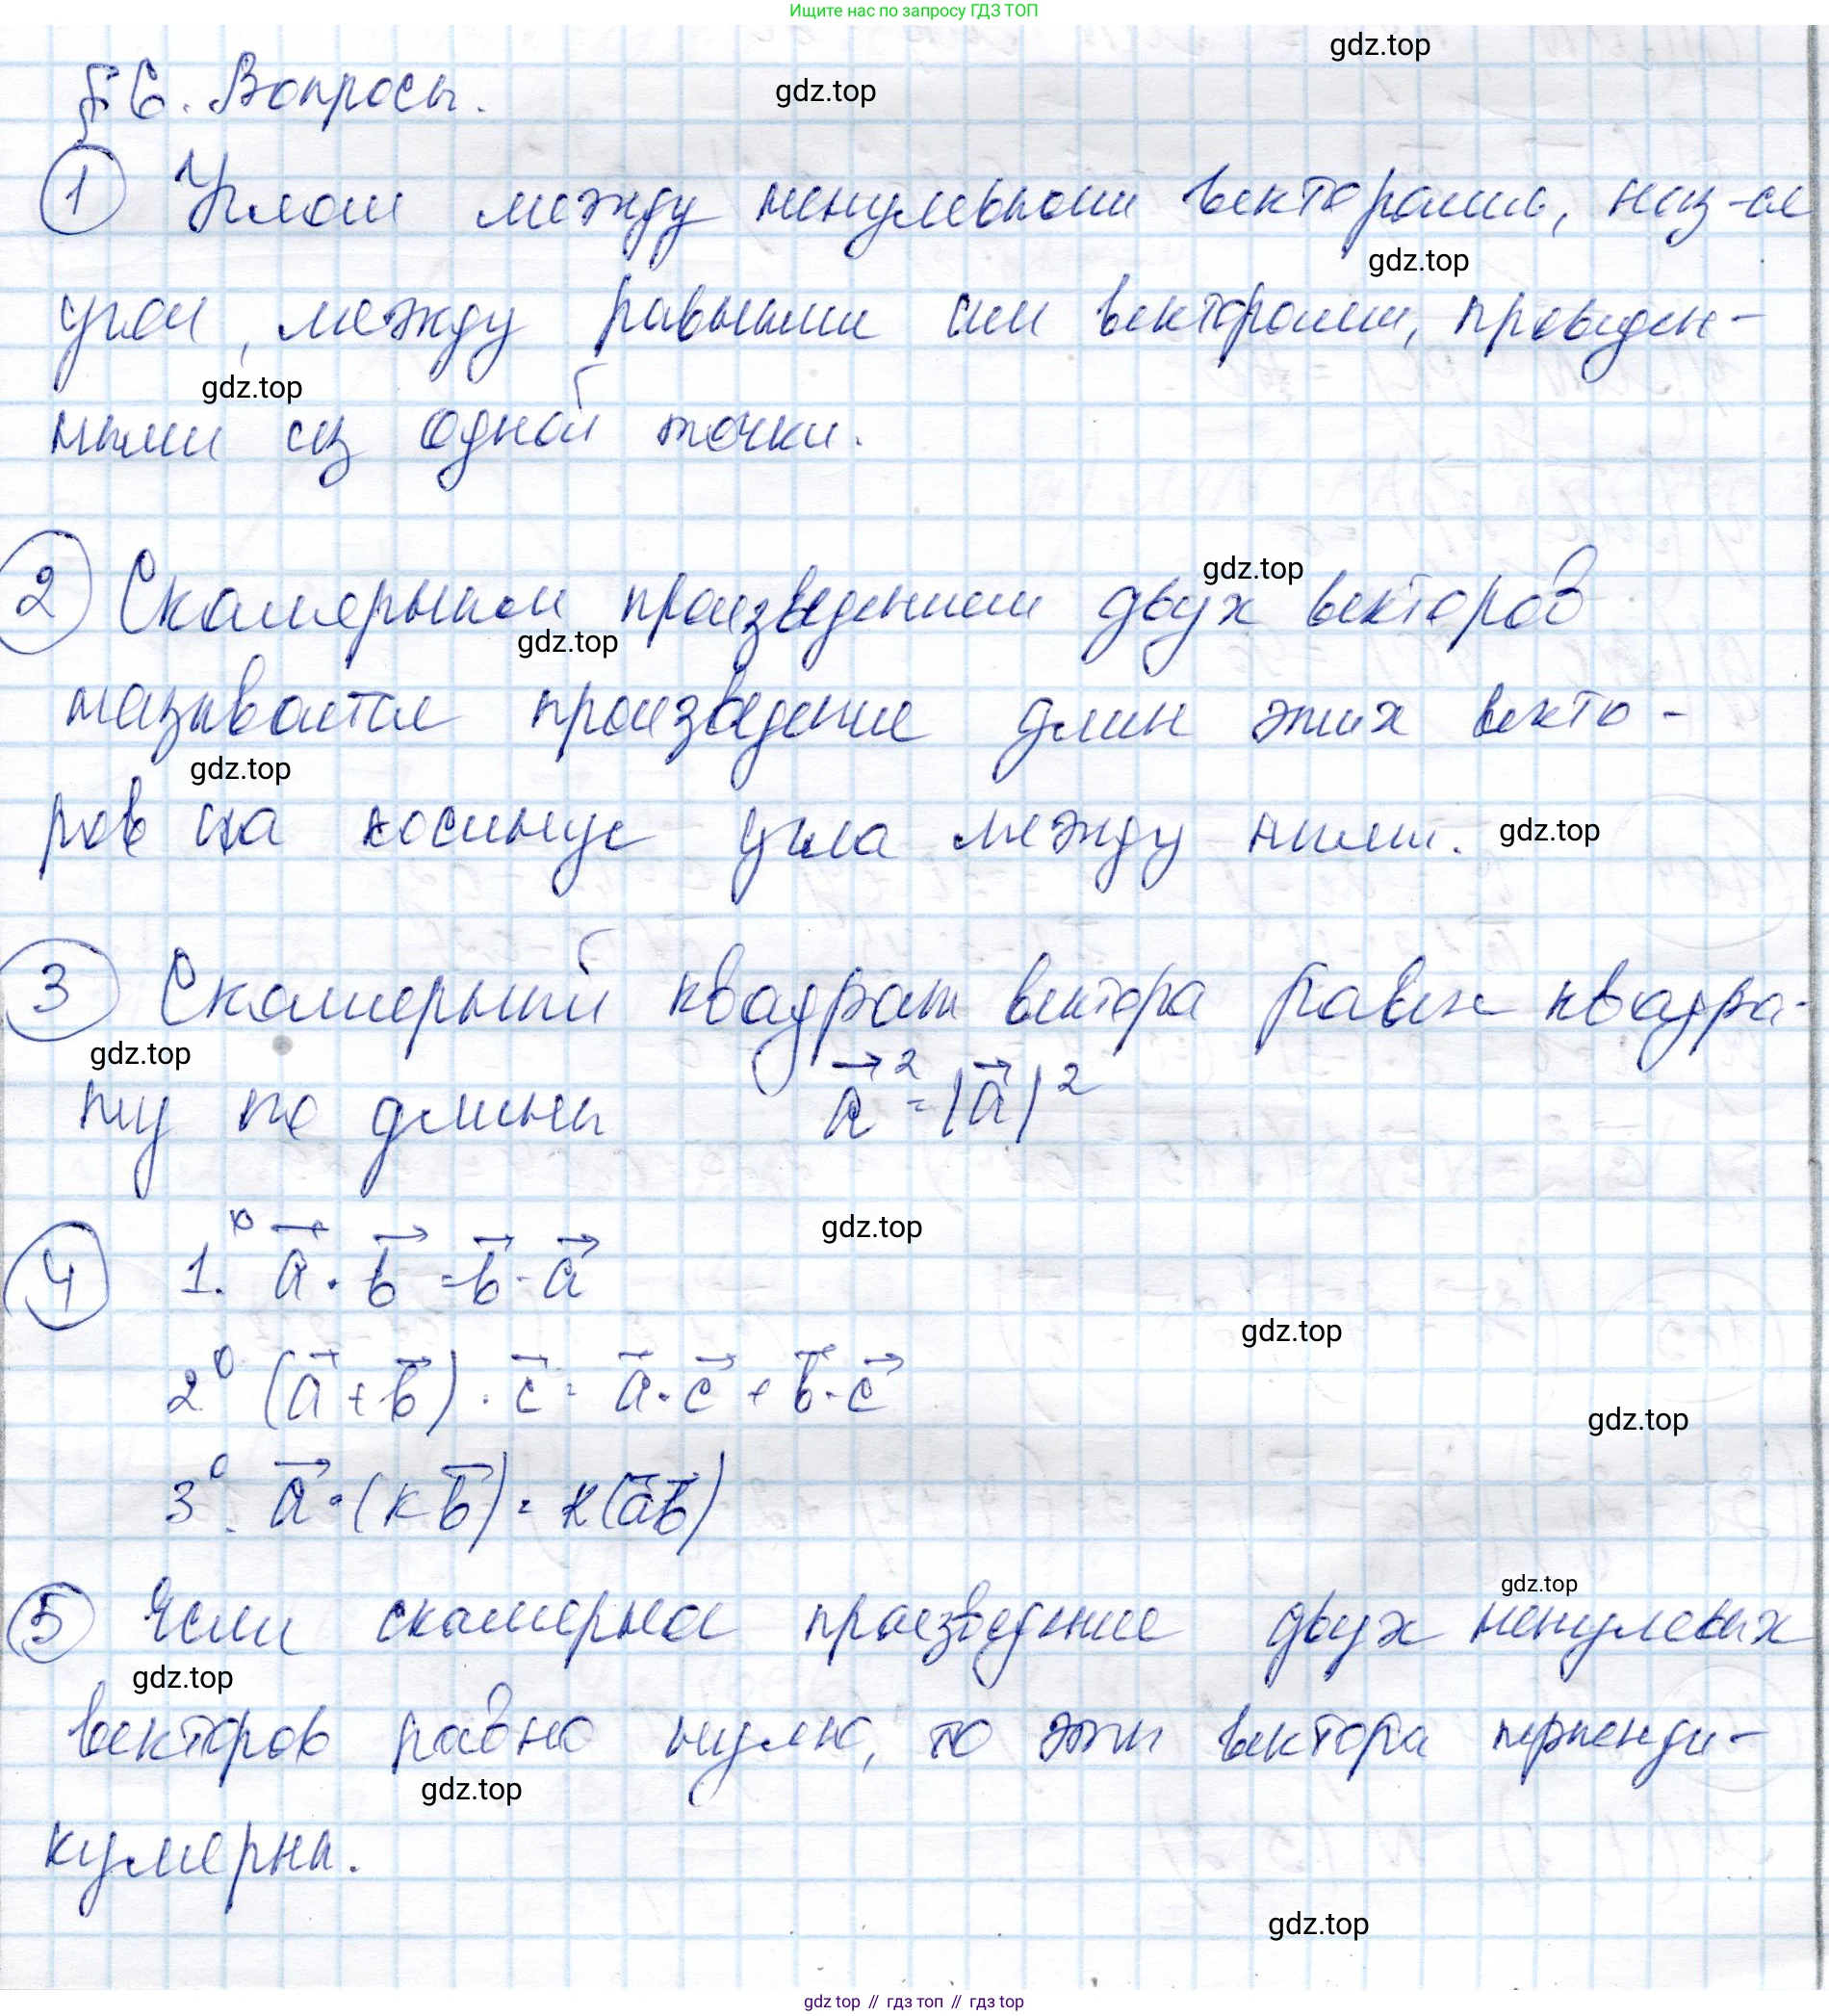 Ищите нас по запросу ГДЗ ТОП
gdz.top
§ 6. Вопросы.
gdz.top
① Углом между ненулевыми векторами, наз-ся
gdz.top
угол, между равными им векторами, проведен-
gdz.top
ными из одной точки.
gdz.top
② Скалярным произведением двух векторов
gdz.top
называется произведение длин этих векто-
gdz.top
ров на косинус угла между ними. gdz.top
③ Скалярный квадрат вектора равен квадра-
gdz.top
ту его длины a⃗² = |a⃗|²
gdz.top
④ 1.° a⃗ · b⃗ = b⃗ · a⃗
gdz.top
2° (a⃗ + b⃗) · c⃗ = a⃗ · c⃗ + b⃗ · c⃗
gdz.top
3°. a⃗ · (k b⃗) = k(a⃗b⃗)
gdz.top
⑤ Если скалярное произведение двух ненулевых
gdz.top
векторов равно нулю, то эти вектора перпенди-
gdz.top
кулярны.
gdz.top
gdz top // гдз топ // гдз top